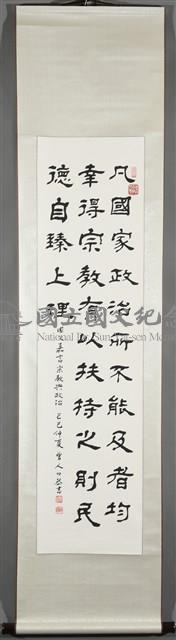 凡國家政治所不能及者均
幸得宗教有以扶持之則民
德自臻上理
國父嘉言宗教與政治 己巳仲夏
國立國父紀念館